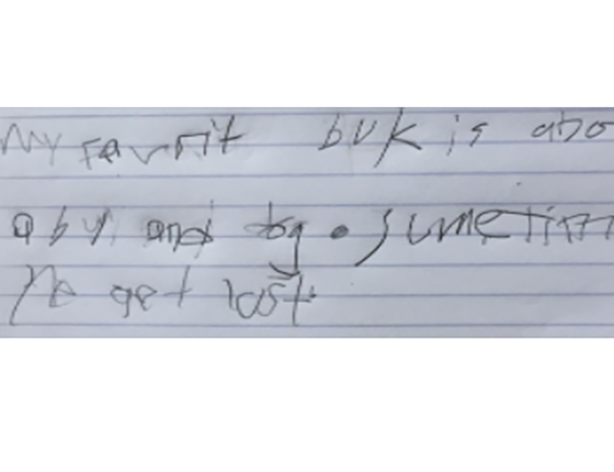 My Favrit buk is abo
a by and dog. sumetim
he get lost.